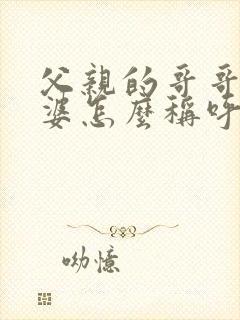 父親的哥哥
婆怎麼稱呼
呦憶